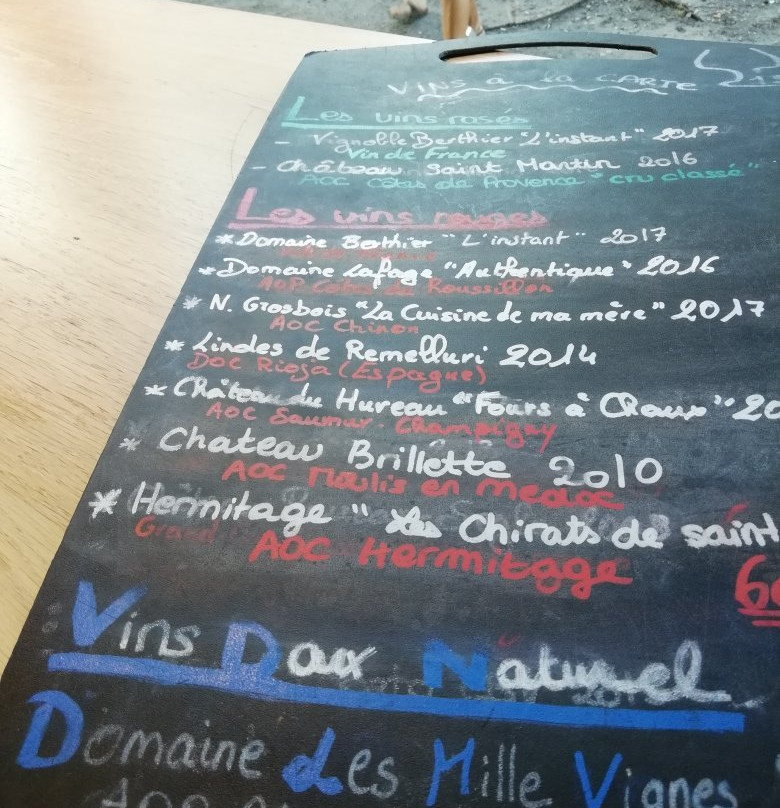 VINS à la CARTE
Les vins rosés
- Vignoble Berthier "L'instant" 2017
Vin de France
- Château Saint Martin 2016
AOC Côtes de Provence "cru classé"
Les vins rouges
* Domaine Berthier "L'instant" 2017
* Domaine Lafage "Authentique" 2016
AOP Côtes du Roussillon
* N. Grosbois "La Cuisine de ma mère" 2017
AOC Chinon
* Lindes de Remelluri 2014
DOC Rioja (Espagne)
* Château du Hureau "Fours à Chaux" 20
AOC Saumur-Champigny
* Chateau Brillette 2010
AOC Moulis en Medoc
* Hermitage "Les Chirats de saint
Grand
AOC Hermitage
Vins Doux Naturel
Domaine Les Mille Vignes